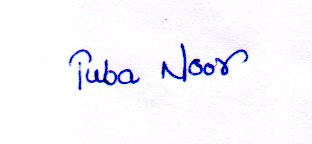 Tuba Noor